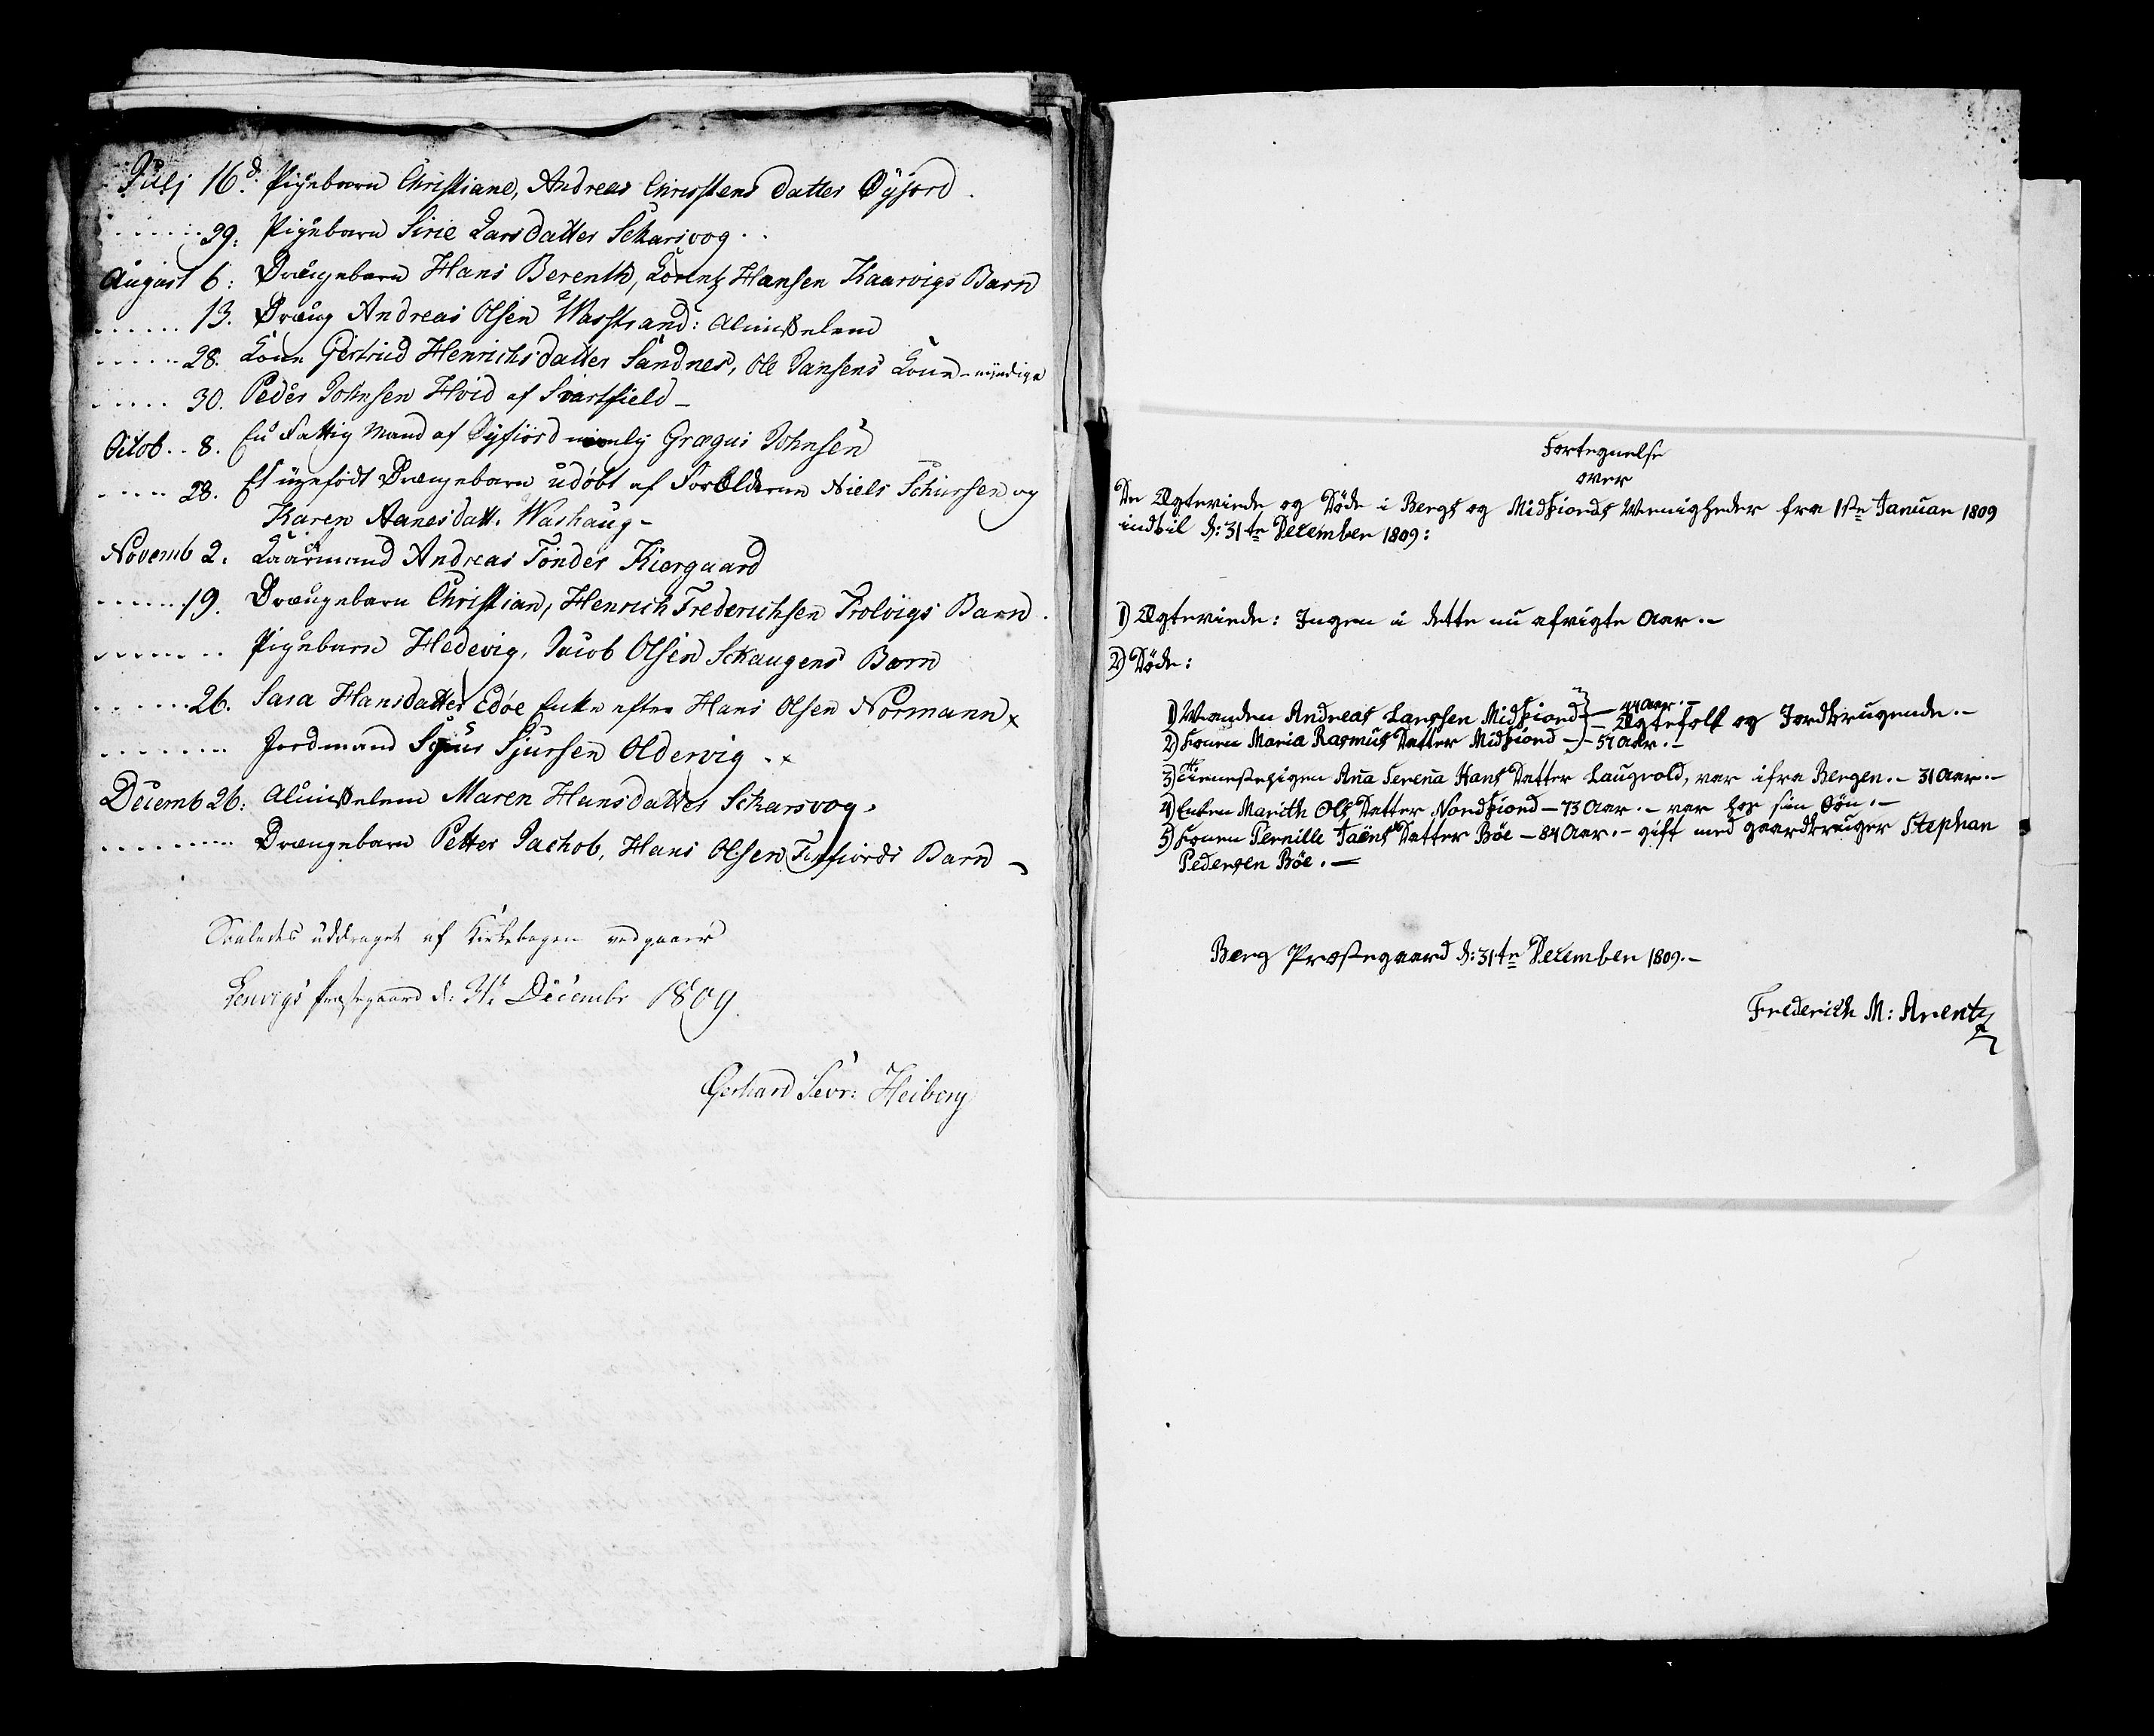 Julj 16.d Pigebarn Christiane, Andreas Christens datter Øyjord.
29. Pigebarn Sirie Larsdatter Scharvog.
August 6. Drængebarn Hans Berenth, Lorentz Hansen Kaarvigs Barn
13. Dræng Andreas Olsen Wasstrand: Almisselem
28. Kone Gertrud Henrichsdatter Sandnes, Ole Jansens Kone - myndige
30. Peder Johnsen Hvid af Svartfield -
Octob.. 8. En Fattig Mand af Øyfiord navnlig Grægus Johnsen
28. Et ugefødt Drængebarn udøbt af Forældrene Niels Schursen og
Karen Aanesdatt. Washaug -
Novemb 2. Kaarmand Andreas Tønder Kiergaard
19. Drængebarn Christian, Henrich Frederichsen Trolvigs Barn.
Pigebarn Hedevig, Jacob Olsen Schaugens Barn
26. Sara Hansdatter Edøe Enke efter Hans Olsen Normann x
Jordmand Sjur Sjursen Oldervig . x
Decemb 26: Almisselem Maren Hansdatter Scharsvog.
Drængebarn Petter Jachob, Hans Olsen Finfiords Barn -
Saaledes uddraget af Kirkebogen vedgaaer
Lenvigs Præstegaard d: 31te Decembr 1809.
Gerhard Sevr: Heiberg
Fortegnelse
over
De Ægteviede og Døde i Bergs og Midfiords Menigheder fra 1ste Januar 1809
indtil d: 31te December 1809:
1) Ægteviede: Ingen i dette nu afvigte Aar. -
2) Døde:
1) Manden Andreas Larssen Midfiord } - 44 Aar. -
2) Konen Maria Rasmus Datter Midfiord - } - 57 Aar. - Ægtefolk og Jordbrugende. -
3) Tienestepigen Anna Serena Hans Datter Laugvold, var ifra Bergen. - 31 Aar. -
4) Enken Marith Ols Datter Nordfiord - 73 Aar. - var hos sin Søn. -
5) Konen Pernille Jaens Datter Bøe - 84 Aar. - gift med gaardbruger Stephan
Pedersen Bøe. -
Berg Præstegaard d: 31te December 1809. -
Frederich M: Arentz